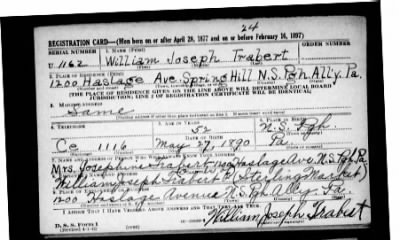 24
REGISTRATION CARD—(Men born on or after April 28, 1877 and on or before February 16, 1897)
SERIAL NUMBER 1. NAME (Print) ORDER NUMBER
U 1162 William Joseph Trabert
2. PLACE OF RESIDENCE (Print)
1200 Haslage Ave Spring Hill N.S. Pgh. Ally. Pa.
[THE PLACE OF RESIDENCE GIVEN ON THE LINE ABOVE WILL DETERMINE LOCAL BOARD
JURISDICTION; LINE 2 OF REGISTRATION CERTIFICATE WILL BE IDENTICAL]
3. MAILING ADDRESS
Same
4. TELEPHONE 5. AGE IN YEARS 6. PLACE OF BIRTH
52 N.S. Pgh.
Ce 1116 May 27, 1890 Pa.
7. NAME AND ADDRESS OF PERSON WHO WILL ALWAYS KNOW YOUR ADDRESS
Mrs. Josephine Trabert 1200 Haslage Ave. N.S. Pgh. Pa
William Joseph Trabert (Sterling Market)
1200 Haslage Avenue N.S. Pgh. Ally. Pa.
I AFFIRM THAT I HAVE VERIFIED ABOVE ANSWERS AND THAT THEY ARE TRUE.
D. S. S. Form 1
(Revised 4-1-42)
William Joseph Trabert